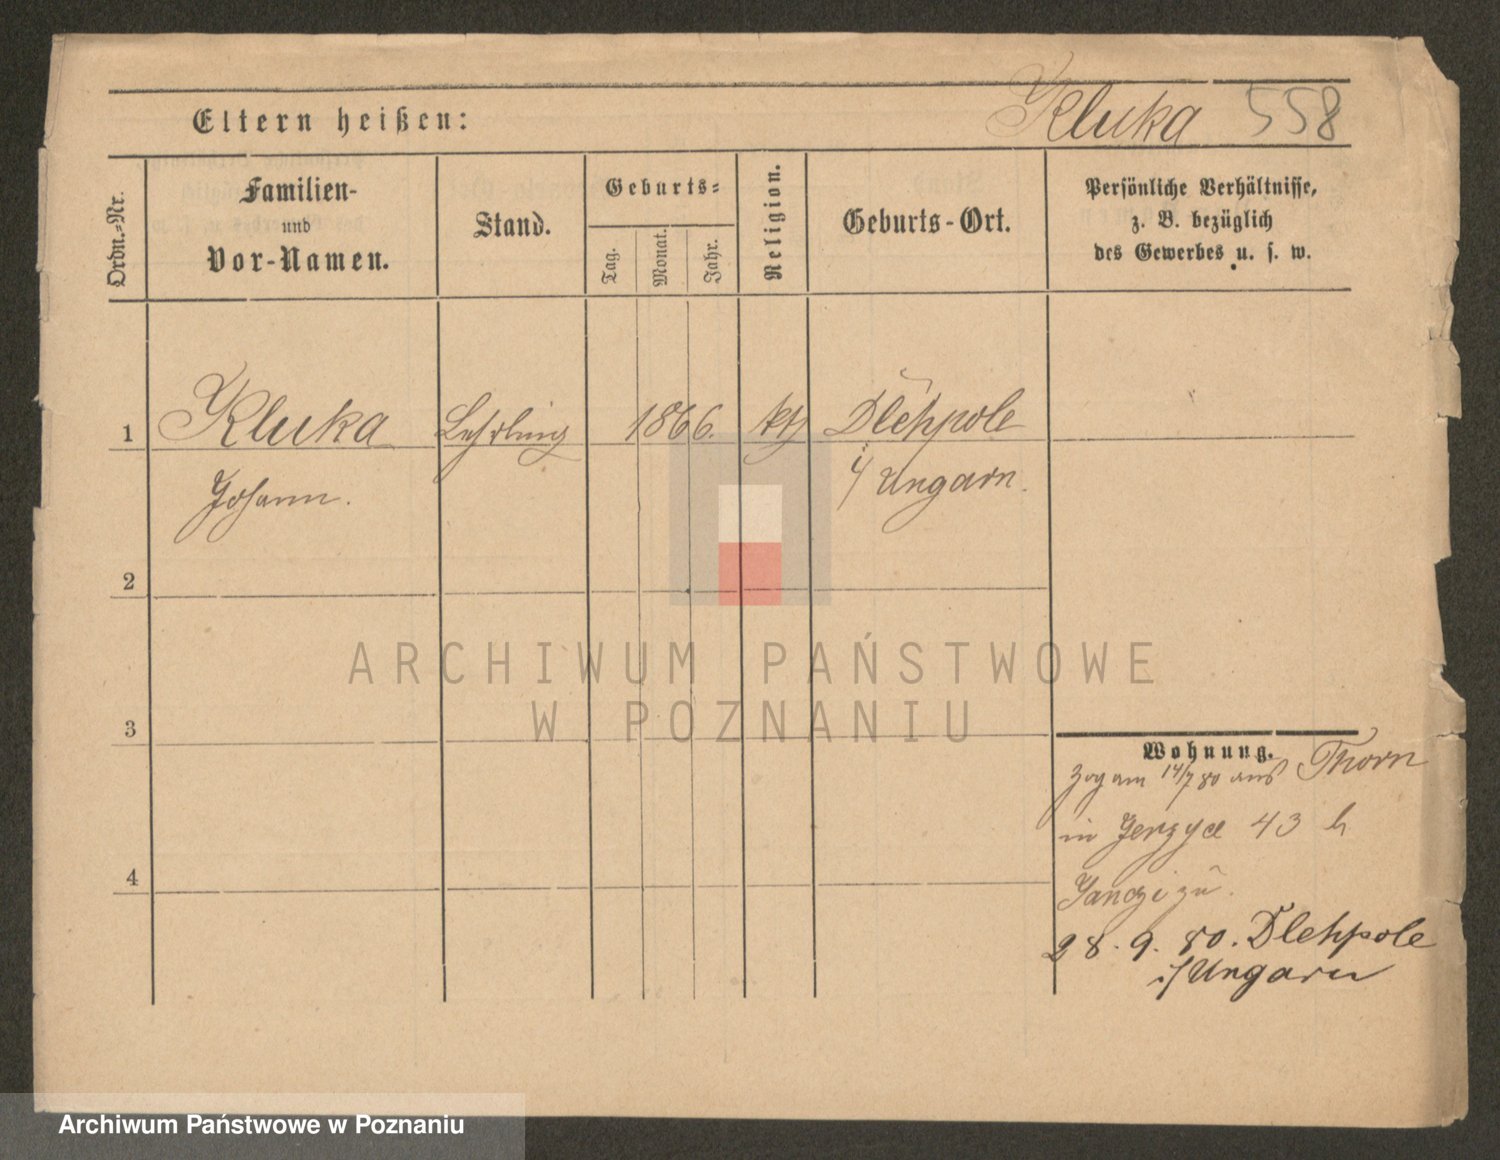 Eltern heißen:
Kluka 558
Ordn.-Nr.
Familien-
und
Vor-Namen.
Stand.
Geburts-
Tag.
Monat.
Jahr.
Religion.
Geburts-Ort.
Persönliche Verhältnisse,
z. B. bezüglich
des Gewerbes u. s. w.
1
Kluka Lehrling 1866. kth Dlehpole
Johann.
i/ Ungarn.
2
3
4
ARCHIWUM PAŃSTWOWE
W POZNANIU
Wohnung.
Zog am 14/7 80 aus Thorn
in Jerzyce 43 b
28. 9. 80. Dlehpole
i/ Ungarn
Archiwum Państwowe w Poznaniu